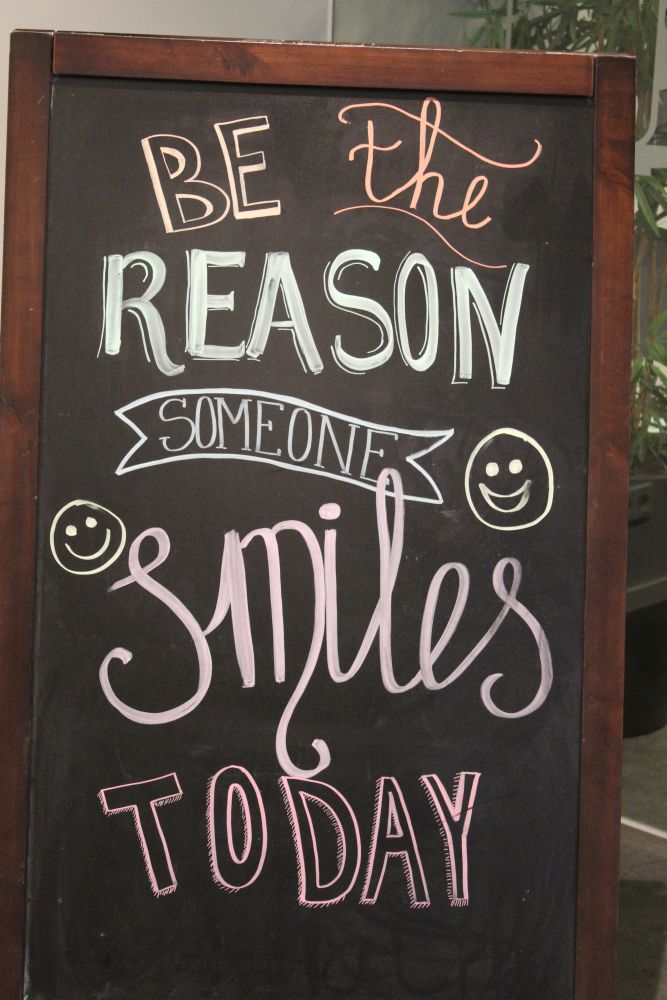 BE the
REASON
SOMEONE
smiles
TODAY